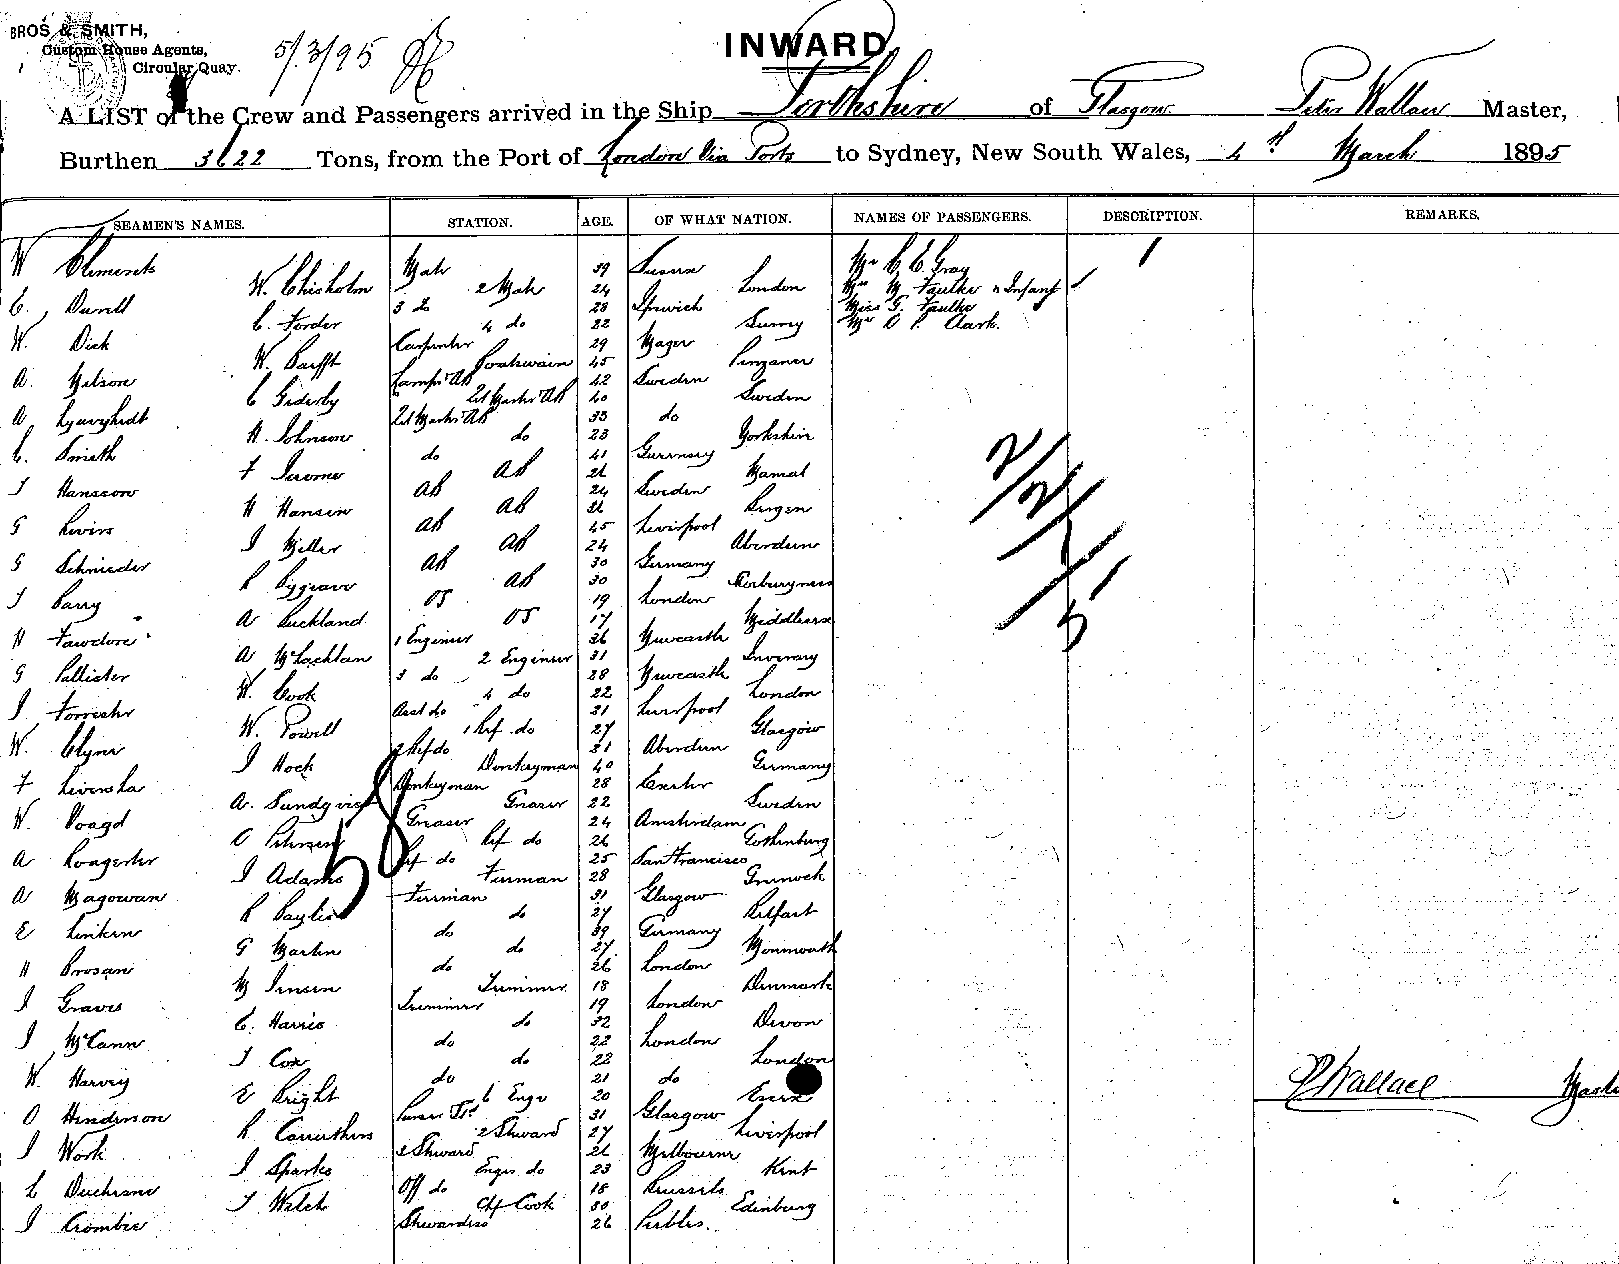 BROS & SMITH,
Custom House Agents,
Circular Quay.
5/3/95
INWARD
A LIST of the Crew and Passengers arrived in the Ship Perthshire of Glasgow Peter Wallace Master,
Burthen 3622 Tons, from the Port of London Via Ports to Sydney, New South Wales, 4th March 1895
SEAMEN'S NAMES. STATION. AGE. OF WHAT NATION. NAMES OF PASSENGERS. DESCRIPTION. REMARKS.
W Clements Mate 39 Sussex Mr C C Gray
W. Chisholm 2 Mate 24 London Mrs M Faulke & Infant
C. Durrell 3 do 28 Ipswich Miss G. Faulke
C. Forder 4 do 22 Surrey Mr O P. Clark.
W. Dick Carpenter 29
W. Boatswain 45 Penzance
A. Nelson Lamps AB 42 Sweden
C 40 Sweden
A 33 do
H. Johnson do 23 Yorkshire
C. Smith do 41 Guernsey
F Jerome AB
J Hansson AB 24 Sweden
H Hansen AB Bergen
G Levins AB 45 Liverpool
J Miller AB 24 Aberdeen
G Schnieder AB 30 Germany
R Bygrave AB 30 Shoeburyness
J Barry OS 19 London
A Buckland OS 17 Middlesex
H Fawdon 1 Engineer 36 Newcastle
A McLachlan 2 Engineer 31 Inverary
G Pallister 3 do 28 Newcastle
W. Cook 4 do 22 London
J Forrester Asst do 21 Liverpool
W. Powell 1 Ref do 27 Glasgow
W. Clyne 2 Ref do 31 Aberdeen
J Hock Donkeyman 40 Germany
F Livensha Donkeyman 28 Exeter
A. Sundqvist Greaser 22 Sweden
W. Voagd Greaser 24 Amsterdam
O Petersen Ref do 26 Gothenburg
A Ref do 25 San Francisco
J Adams Fireman 28 Greenock
A Magowan Fireman 31 Glasgow
R Baylis do 27 Belfast
E Linken do 39 Germany
G Martin do 27 Monmouth
H Brosan do 26 London
M Jensen Trimmer 18 Denmark
J Graves Trimmer 19 London
C. Harris do 32 Devon
J McCann do 22 London
J Cox do 22 London
W. Harvey do 21 do
E Bright 20 Essex
O Henderson 31 Glasgow
R Carruthers 2 Steward 27 Liverpool
J Work 2 Steward Melbourne
J Sparks Engrs do 23 Kent
L Duchesne Off do 18 Brussels
J Welch Chf Cook 30 Edinburg
J Crombie Stewardess 26 Peebles.
P Wallace